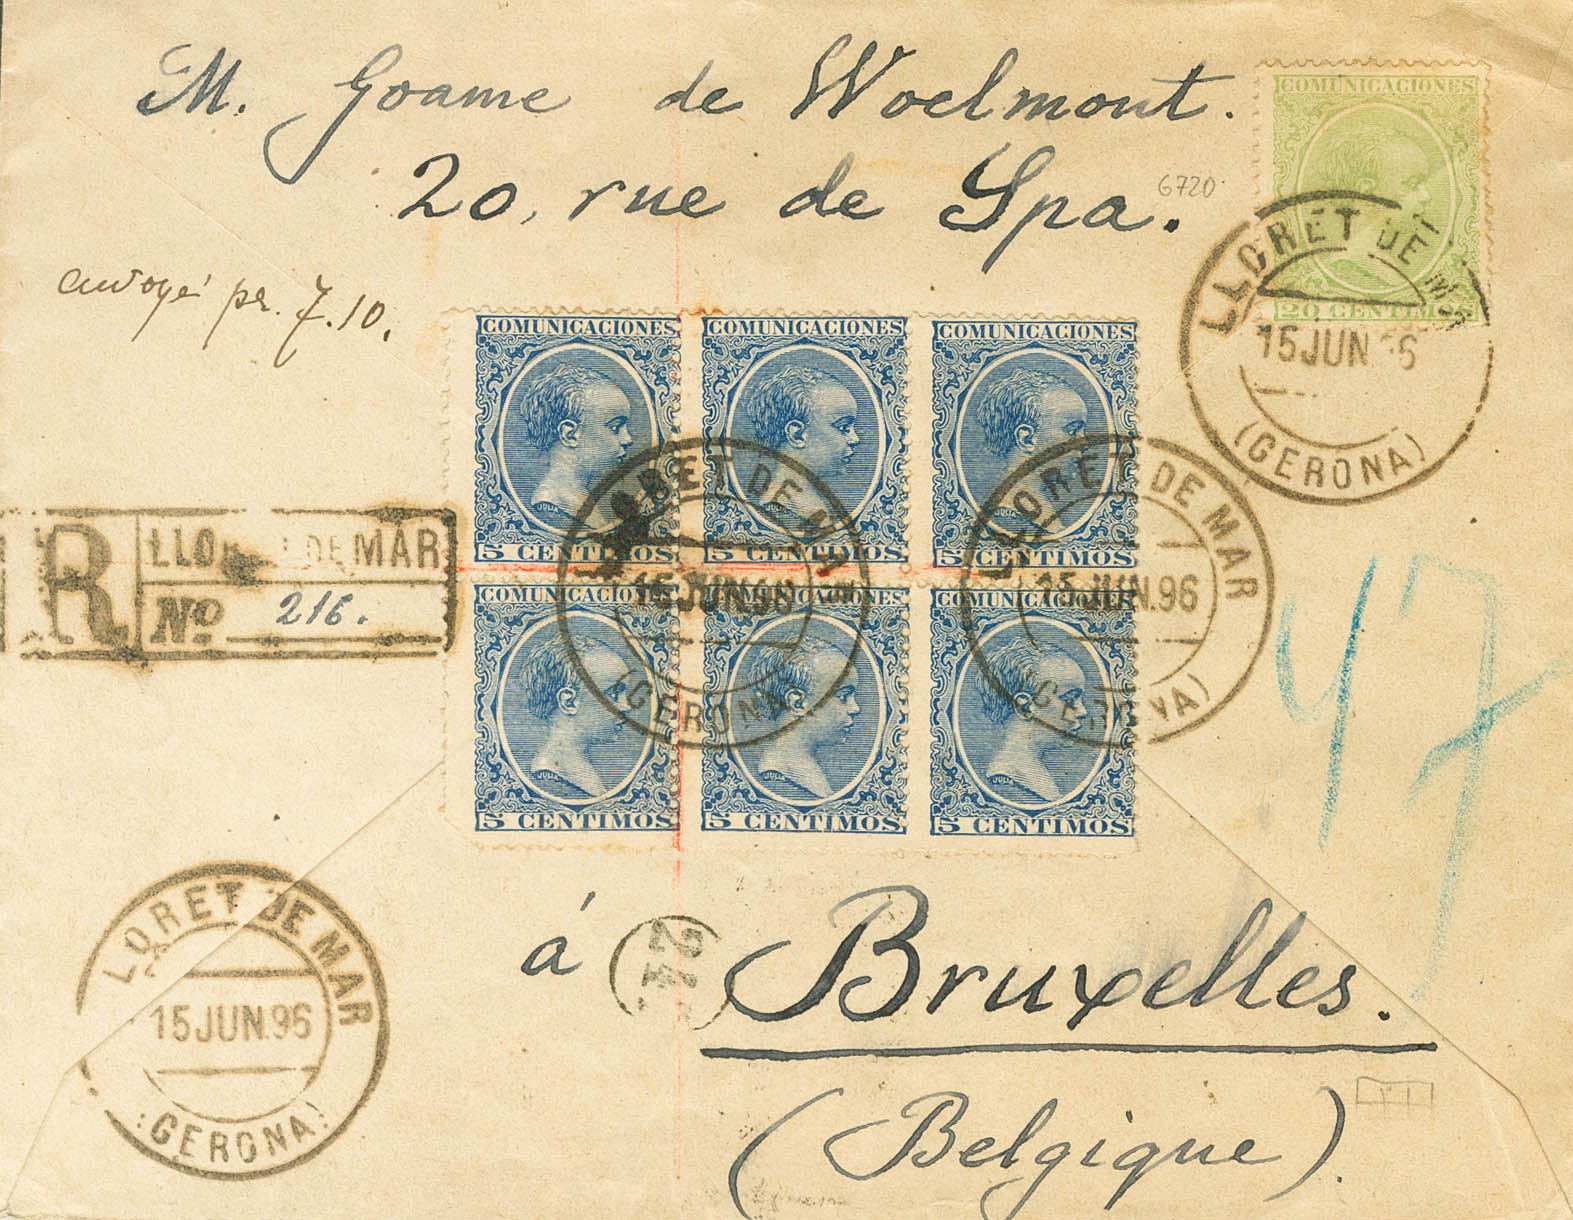 M. Goame de Woelmont.
20, rue de Spa.
6720
envoyé pr. 7.10.
COMUNICACIONES
20 CENTIMOS
LLORET DE MAR
15 JUN 96
(GERONA)
COMUNICACIONES COMUNICACIONES COMUNICACIONES
JULIA JULIA
5 CENTIMOS 5 CENTIMOS 5 CENTIMOS
COMUNICACIONES COMUNICACIONES COMUNICACIONES
JULIA JULIA JULIA
5 CENTIMOS 5 CENTIMOS 5 CENTIMOS
LLORET DE MAR
15 JUN. 96
(GERONA)
LLORET DE MAR
15 JUN. 96
(GERONA)
R LLORET DE MAR
No 216.
47
LLORET DE MAR
15 JUN. 96
(GERONA)
24
á Bruxelles.
(Belgique)